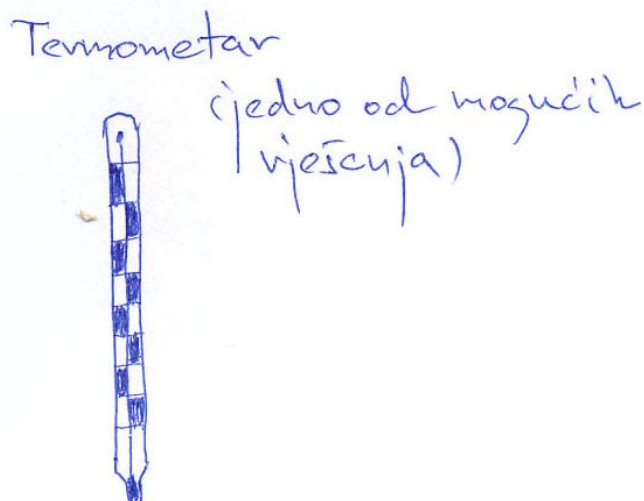 Termometar
(jedno od mogućih
rješenja)